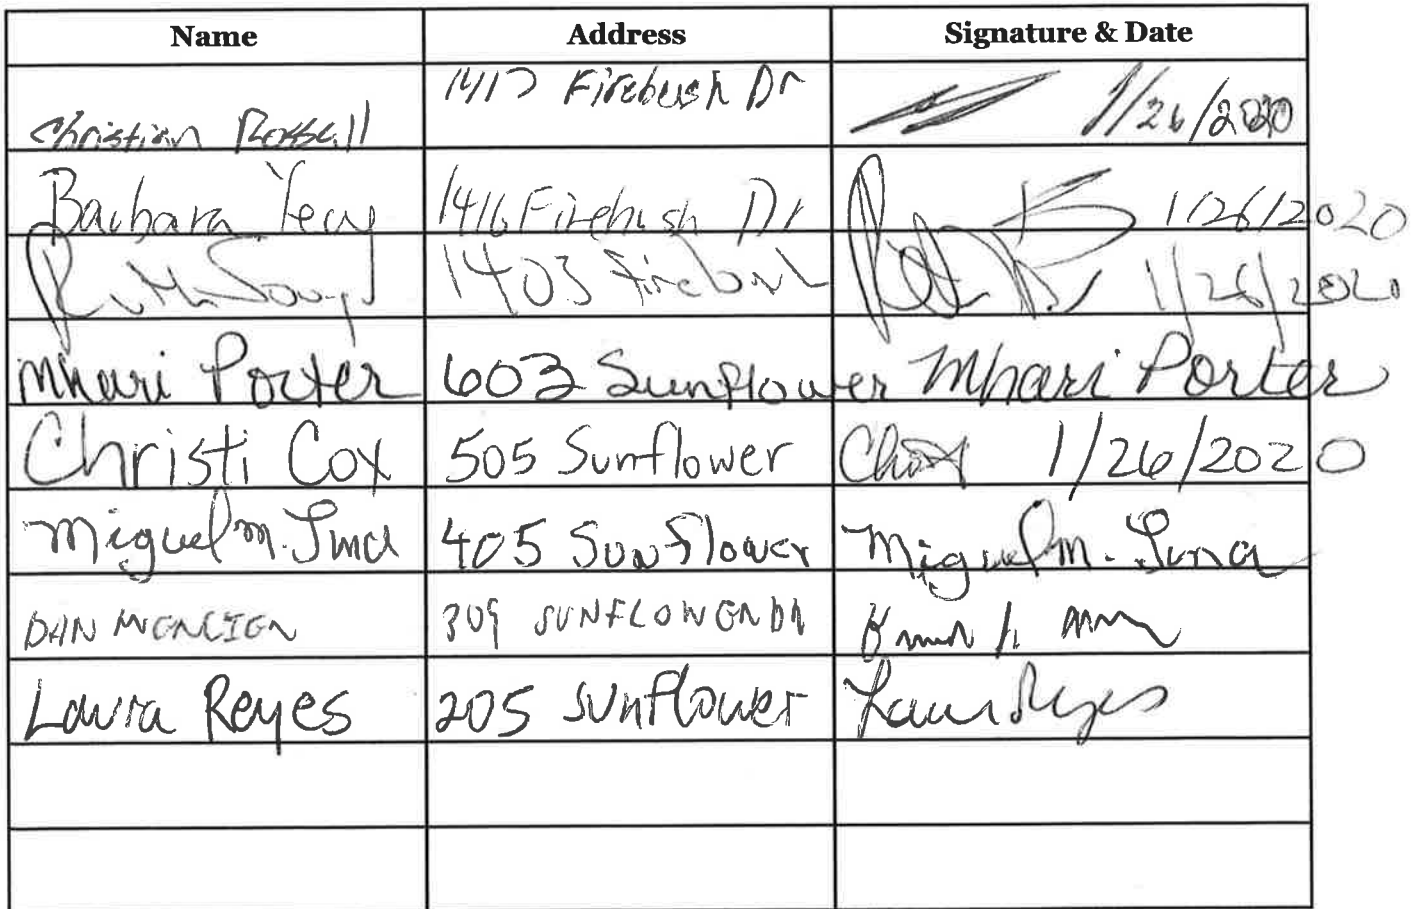 Name Address Signature & Date
Christian 1417 Firebush Dr 1/26/2020
Barbara 1416 Firebush Dr 1/26/2020
1403 Firebush 1/26/2020
Mhari Porter 603 Sunflower Mhari Porter
Christi Cox 505 Sunflower 1/26/2020
Miguel M. Luna 405 Sunflower Miguel M. Luna
DAN 309 SUNFLOWER DR
Laura Reyes 205 Sunflower Laura Reyes